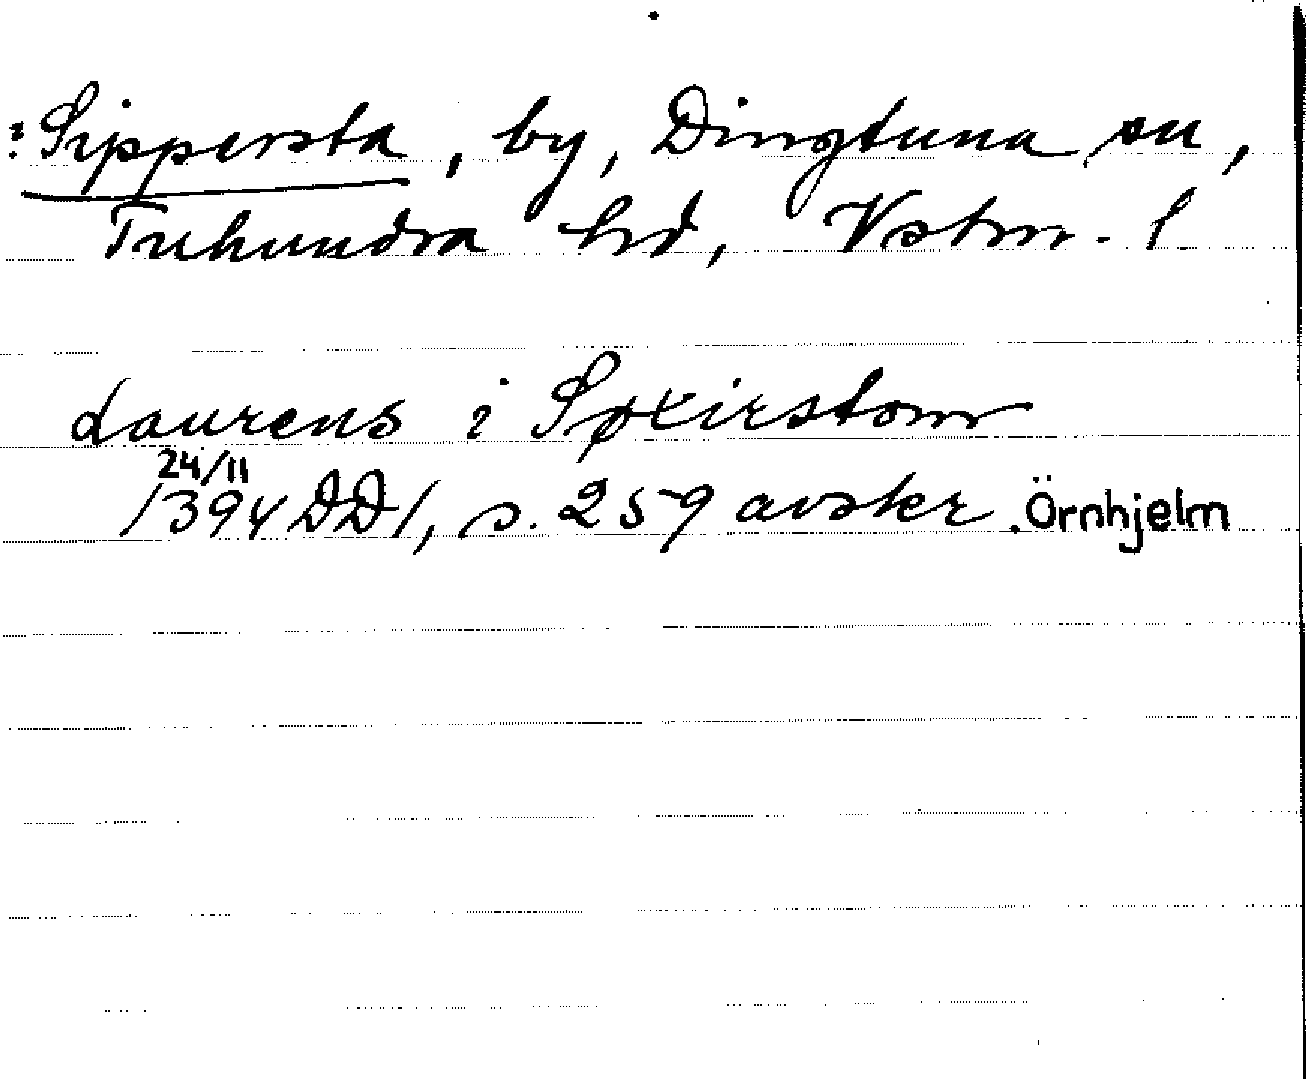 ?Sippersta, by, Dingtuna sn,
Tuhundra hd, Vstm. l
Laurens i Søxirstom
24/11
1394 DD1, s. 259 avskr. Örnhjelm